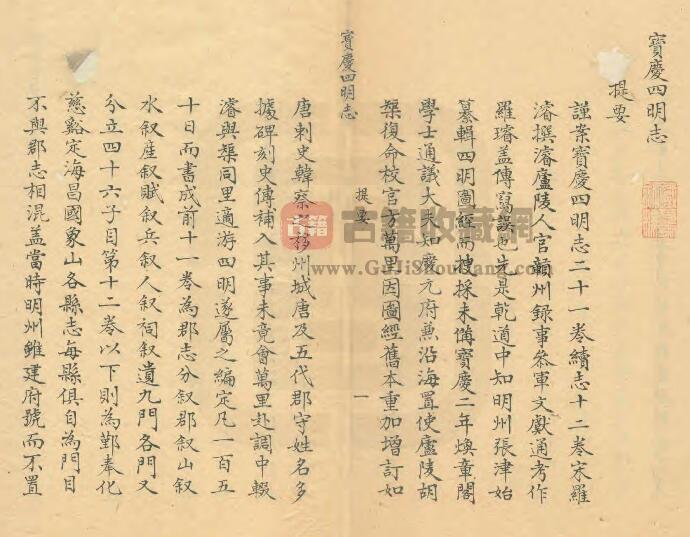 寶慶四明志
提要
謹案寶慶四明志二十一卷續志十二卷宋羅
濬撰濬廬陵人官贑州録事叅軍文獻通考作
羅璿盖傳寫誤也先是乾道中知明州張津始
纂輯四明圖經而搜採未備寶慶二年煥章閣
學士通議大夫知慶元府兼沿海置使廬陵胡
榘復命校官方萬里因圖經舊本重加增訂如
寶慶四明志
提要
一
唐刺史韓察移州城唐及五代郡守姓名多
據碑刻史傳補入其事未竟會萬里赴調中輟
濬與榘同里適游四明遂屬之編定凡一百五
十日而書成前十一卷為郡志分叙郡叙山叙
水叙産叙賦叙兵叙人叙祠叙遺九門各門又
分立四十六子目第十二卷以下則為鄞奉化
慈谿定海昌國象山各縣志每縣俱自為門目
不與郡志相混盖當時明州雖建府號而不置
古籍
古籍收藏網
www.GuJiShouCang.com